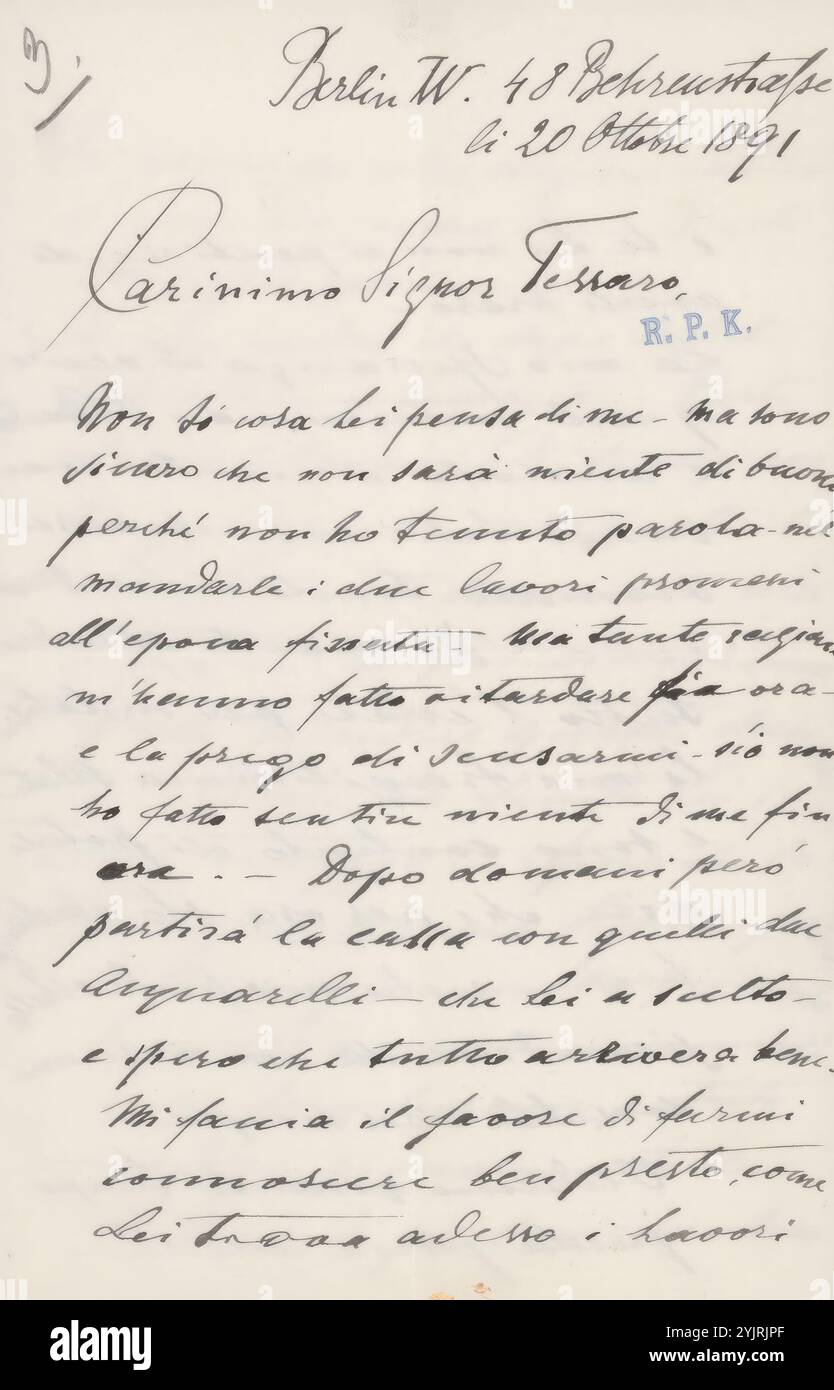 3.
Berlin W. 48 Behrenstraße
li 20 Ottobre 1891
Carissimo Signor Tessaro,
R. P. K.
Non so cosa Lei pensa di me - ma sono
sicuro che non sarà niente di buono
perché non ho tenuto parola - nel
mandarle i due lavori promessi
all'epoca fissata - ma tante ragioni
m'hanno fatto ritardare fin ora -
e la prego di scusarmi - s'io non
ho fatto sentire niente di me fin
ora. - Dopo domani però
partirà la cassa con quelli due
Acquarelli - che Lei a scelto -
e spero che tutto arrivera bene.
Mi faccia il favore di farmi
connoscere ben presto, come
Lei trova adesso i lavori
alamy
alamy
Image ID: 2YJRJPF
www.alamy.com